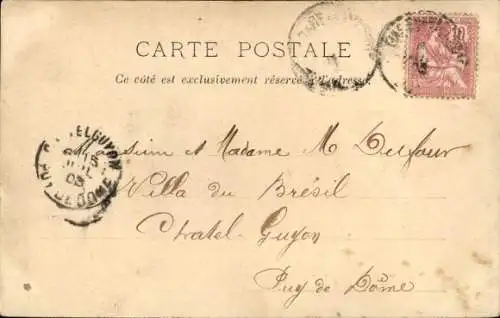 CARTE POSTALE
Ce côté est exclusivement réservé à l'adresse
10
Monsieur et Madame M Dufour
Villa du Brésil
Chatel-Guyon
Puy de Dôme
CHATELGUYON
JUIL
03
PUY DE DOME